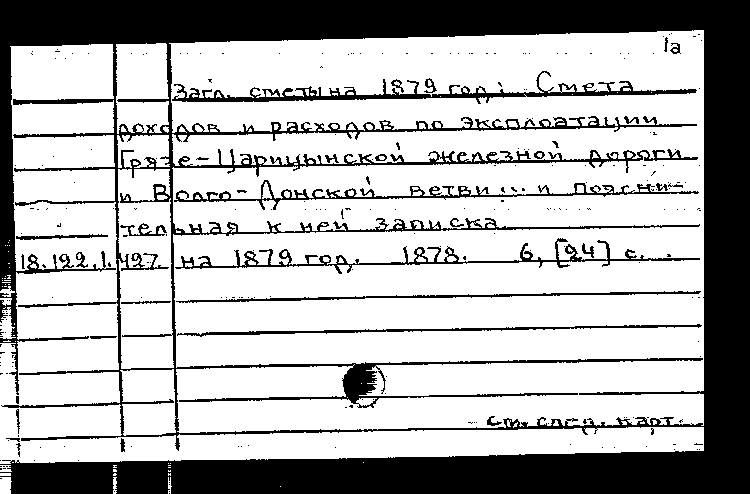 1а
Загл. сметы на 1879 год: Смета
доходов и расходов по эксплоатации
Грязе-Царицынской железной дороги
и Волго-Донской ветви ... и поясни-
тельная к ней записка
18.122.1.427 на 1879 год. 1878. 6, [24] с.
см. след. карт.